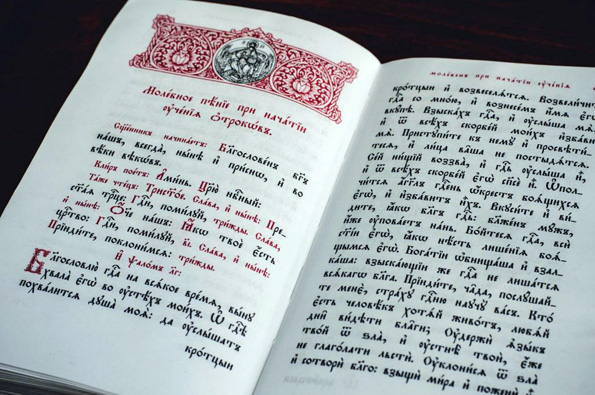 Моле́бное пѣ́нїе при нача́тїи
ᲂу҆че́нїѧ ѻ҆трокѡ́въ.
Сщ҃е́нникъ начина́етъ: Благослове́нъ бг҃ъ
на́шъ, всегда̀, ны́нѣ и҆ при́снѡ, и҆ во
вѣ́ки вѣкѡ́въ.
Ли́къ пое́тъ: А҆ми́нь. Цр҃ю̀ нбⷭ҇ный:
Та́же чте́цъ: Трист҃о́е. Сла́ва, и҆ ны́нѣ: Пре-
ст҃а́ѧ трⷪ҇це: Гдⷭ҇и, поми́лꙋй, три́жды. Сла́ва,
и҆ ны́нѣ: Ѻ҆́ч҃е на́шъ: Ꙗ҆́кѡ твоѐ є҆́сть
црⷭ҇тво: Гдⷭ҇и, поми́лꙋй, в҃і. Сла́ва, и҆ ны́нѣ:
Прїиди́те, поклони́мсѧ: три́жды.
И҆ ѱало́мъ л҃г:
Благословлю̀ гдⷭ҇а на всѧ́кое вре́мѧ, вы́нꙋ
хвала̀ є҆гѡ̀ во ᲂу҆стѣ́хъ мои́хъ. Ѡ҆ гдⷭ҇ѣ
похва́литсѧ дꙋша̀ моѧ̀: да ᲂу҆слы́шатъ
кро́тцыи
моле́бенъ при нача́тїи ᲂу҆че́нїѧ
кро́тцыи и҆ возвеселѧ́тсѧ. Возвели́чите
гдⷭ҇а со мно́ю, и҆ вознесе́мъ и҆́мѧ є҆гѡ̀
вкꙋ́пѣ. Взыска́хъ гдⷭ҇а, и҆ ᲂу҆слы́ша мѧ̀,
и҆ ѿ всѣ́хъ скорбе́й мои́хъ и҆зба́ви
мѧ̀. Пристꙋпи́те къ немꙋ̀ и҆ просвѣти́-
тесѧ, и҆ ли́ца ва̑ша не постыдѧ́тсѧ.
Се́й ни́щїй воззва̀, и҆ гдⷭ҇ь ᲂу҆слы́ша и҆̀,
и҆ ѿ всѣ́хъ скорбе́й є҆гѡ̀ сп҃сѐ и҆̀. Ѡ҆пол-
чи́тсѧ а҆́гг҃лъ гдⷭ҇ень ѡ҆́крестъ боѧ́щихсѧ
є҆гѡ̀, и҆ и҆зба́витъ и҆̀хъ. Вкꙋси́те и҆ ви́-
дите, ꙗ҆́кѡ бл҃гъ гдⷭ҇ь: блаже́нъ мꙋ́жъ,
и҆́же ᲂу҆пова́етъ на́нь. Бо́йтесѧ гдⷭ҇а, всѝ
ст҃і́и є҆гѡ̀, ꙗ҆́кѡ нѣ́сть лише́нїѧ боѧ́-
щымсѧ є҆гѡ̀. Бога́тїи ѡ҆бнища́ша и҆ взал-
ка́ша: взыска́ющїи же гдⷭ҇а не лиша́тсѧ
всѧ́кагѡ бл҃га. Прїиди́те, ча̑да, послꙋ́шай-
те менѐ, стра́хꙋ гдⷭ҇ню наꙋчꙋ̀ ва́съ. Кто̀
є҆́сть человѣ́къ хотѧ́й живо́тъ, любѧ́й
дни̑ ви́дѣти бл҃ги; Оу҆держѝ ѧ҆зы́къ
тво́й ѿ ѕла̀, и҆ ᲂу҆стнѣ̀ твоѝ, є҆́же
не глаго́лати льстѝ. Оу҆клони́сѧ ѿ ѕла̀
и҆ сотворѝ бл҃го: взыщѝ ми́ра и҆ пожени́ и҆̀.